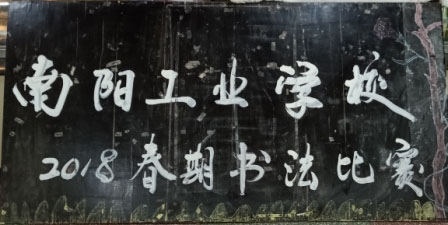 南阳工业学校
2018春期书法比赛